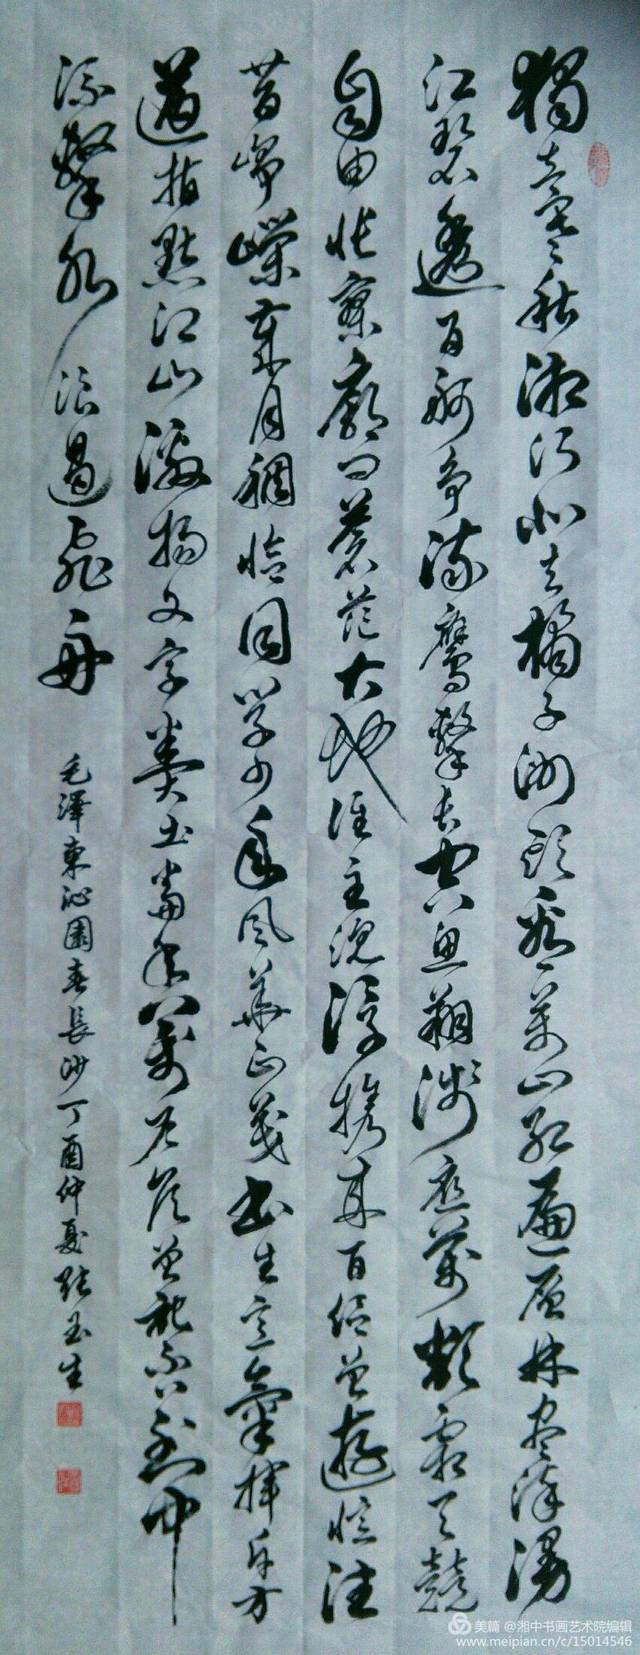 獨立寒秋湘江北去橘子洲頭看萬山紅遍層林盡染漫
江碧透百舸争流鷹擊長空魚翔淺底萬類霜天競
自由悵寥廓問蒼茫大地誰主沉浮攜來百侣曾遊憶往
昔崢嶸歲月稠恰同學少年風華正茂書生意氣揮斥方
遒指點江山激揚文字糞土當年萬户侯曾記否到中
流擊水浪遏飛舟
毛澤東沁園春長沙丁酉仲夏張玉生
美篇 @湘中书画艺术院编辑
www.meipian.cn/c/15014546